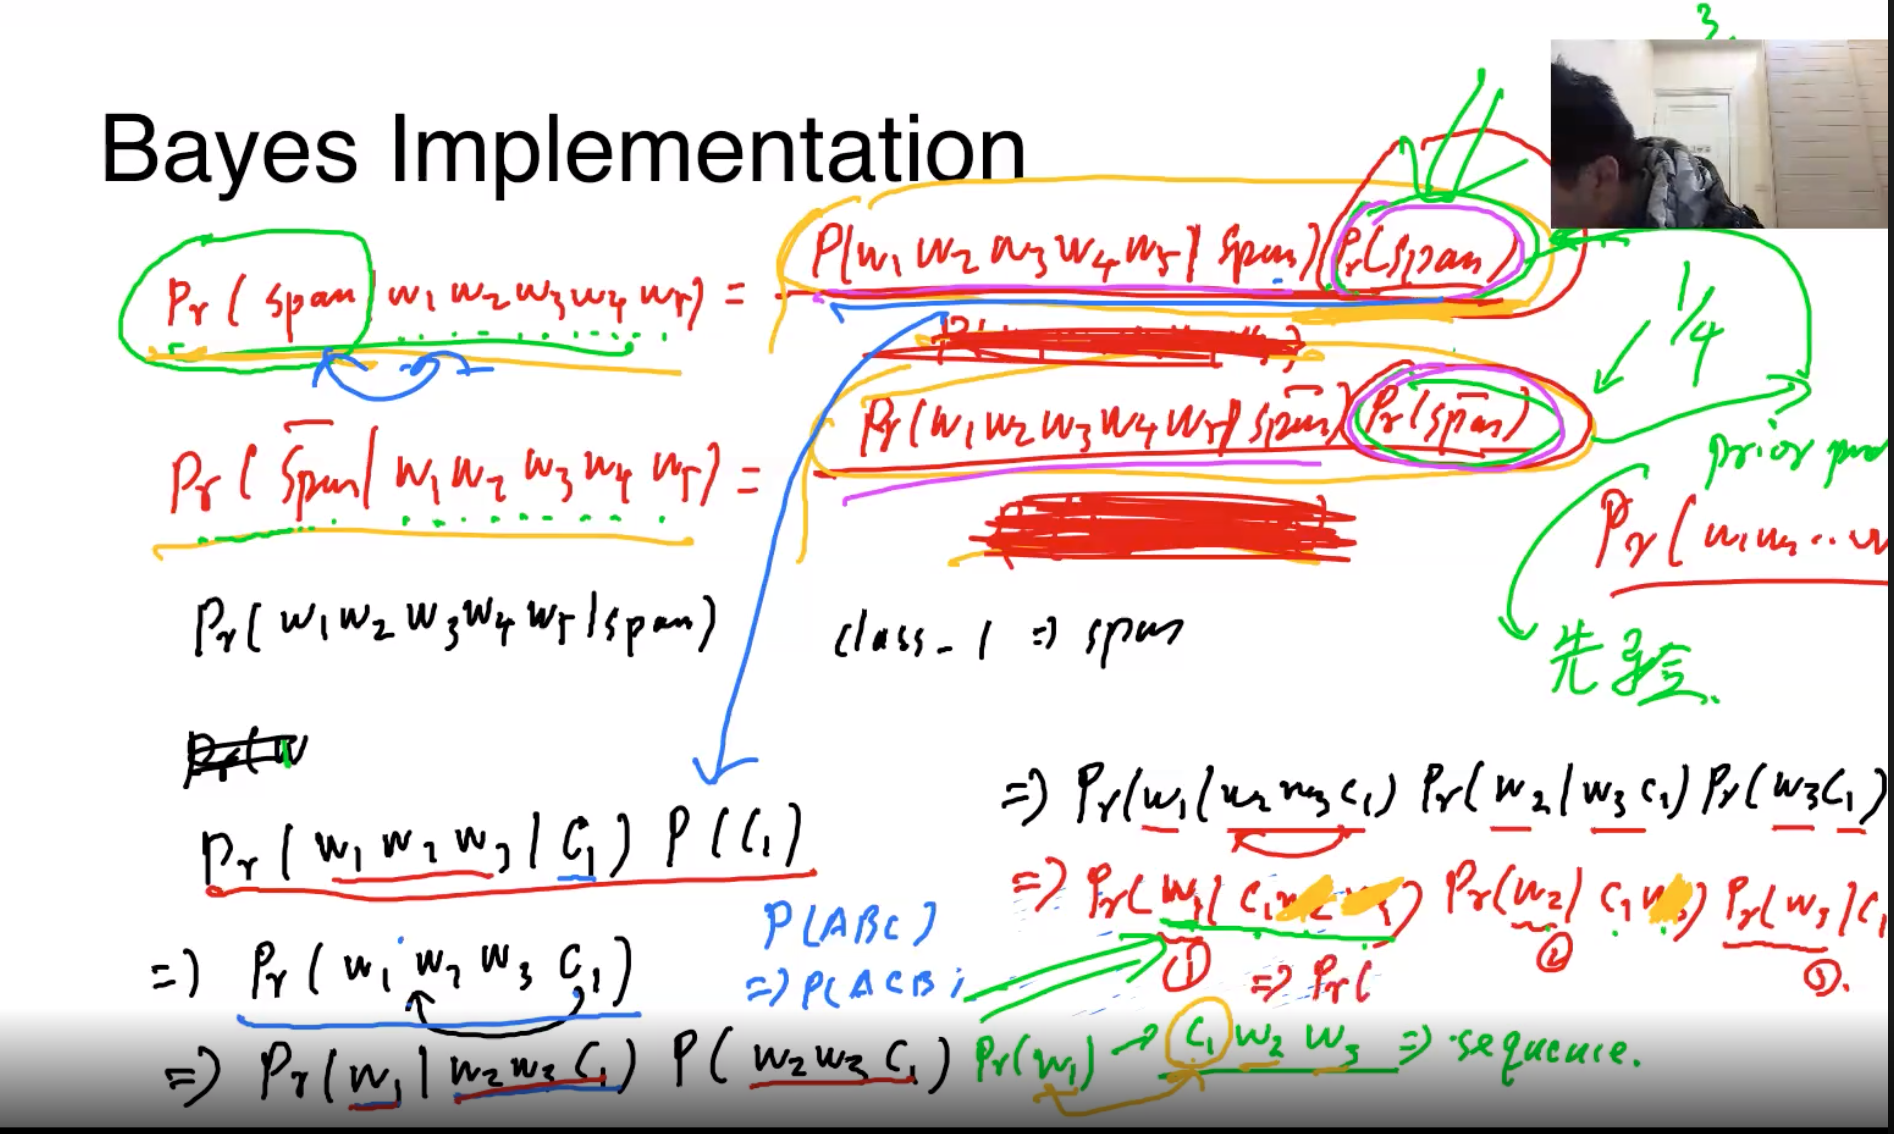 3.
Bayes Implementation
Pr ( span | w1 w2 w3 w4 w5 ) = P(w1 w2 w3 w4 w5 | span) Pr(span)
1/4
Pr ( span | w1 w2 w3 w4 w5 ) = Pr (w1 w2 w3 w4 w5 | span) Pr (span)
prior
Pr ( w1 w2 ..
Pr( w1 w2 w3 w4 w5 | span) class-1 => span
先验.
Pr(w
Pr ( w1 w2 w3 | C1 ) P (C1)
=> Pr(w1 | w2 w3 C1) Pr( w2 | w3 C1) Pr( w3 C1)
=> Pr( w1 | C1 Pr(w2 | C1 ) Pr( w3 | C1
① ② ③.
P(ABC)
=> Pr ( w1 w2 w3 C1) => P(ACB) => Pr(
=> Pr ( w1 | w2 w3 C1 ) P( w2 w3 C1 ) Pr(w1) → C1 w2 w3 => sequence.